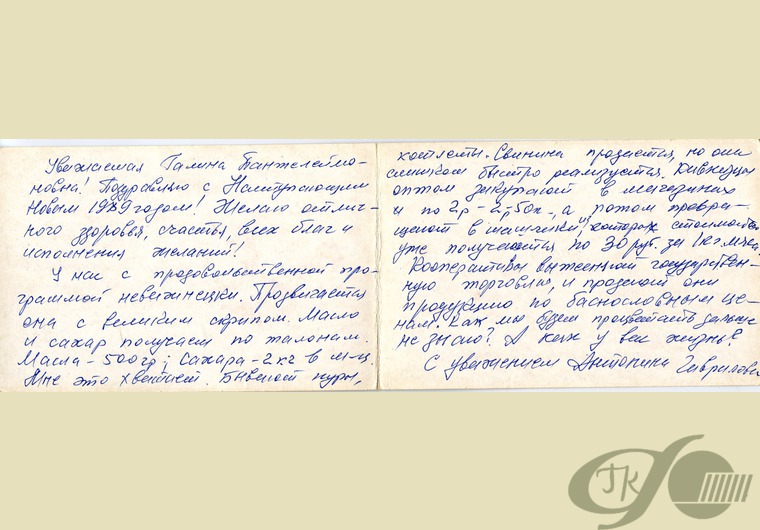 Уважаемая Галина Пантелеймо-
новна! Поздравляю с Наступающим
Новым 1989 годом! Желаю отлич-
ного здоровья, счастья, всех благ и
исполнения желаний!
У нас с продовольственной про-
граммой невежинецки. Продвигается
она с великим скрипом. Масло
и сахар получаем по талонам.
Масла - 500 гр; Сахара - 2 кг в м-ц.
Мне это хватает. Бывают куры,
Свинина продается, но она
слишком быстро реализуется.
оптом закупают в магазинах
и по 2р - 2р-50к, а потом превра-
щают в шашлыки, стоимость
уже получается по 30 руб. за 1 кг мяса.
Кооперативы государствен-
ную торговлю, и продают они
продукцию по баснословным це-
нам. Как мы будем процветать дальше
не знаю? А как у вас жизнь?
С уважением Антонина Гавриловна
ГК